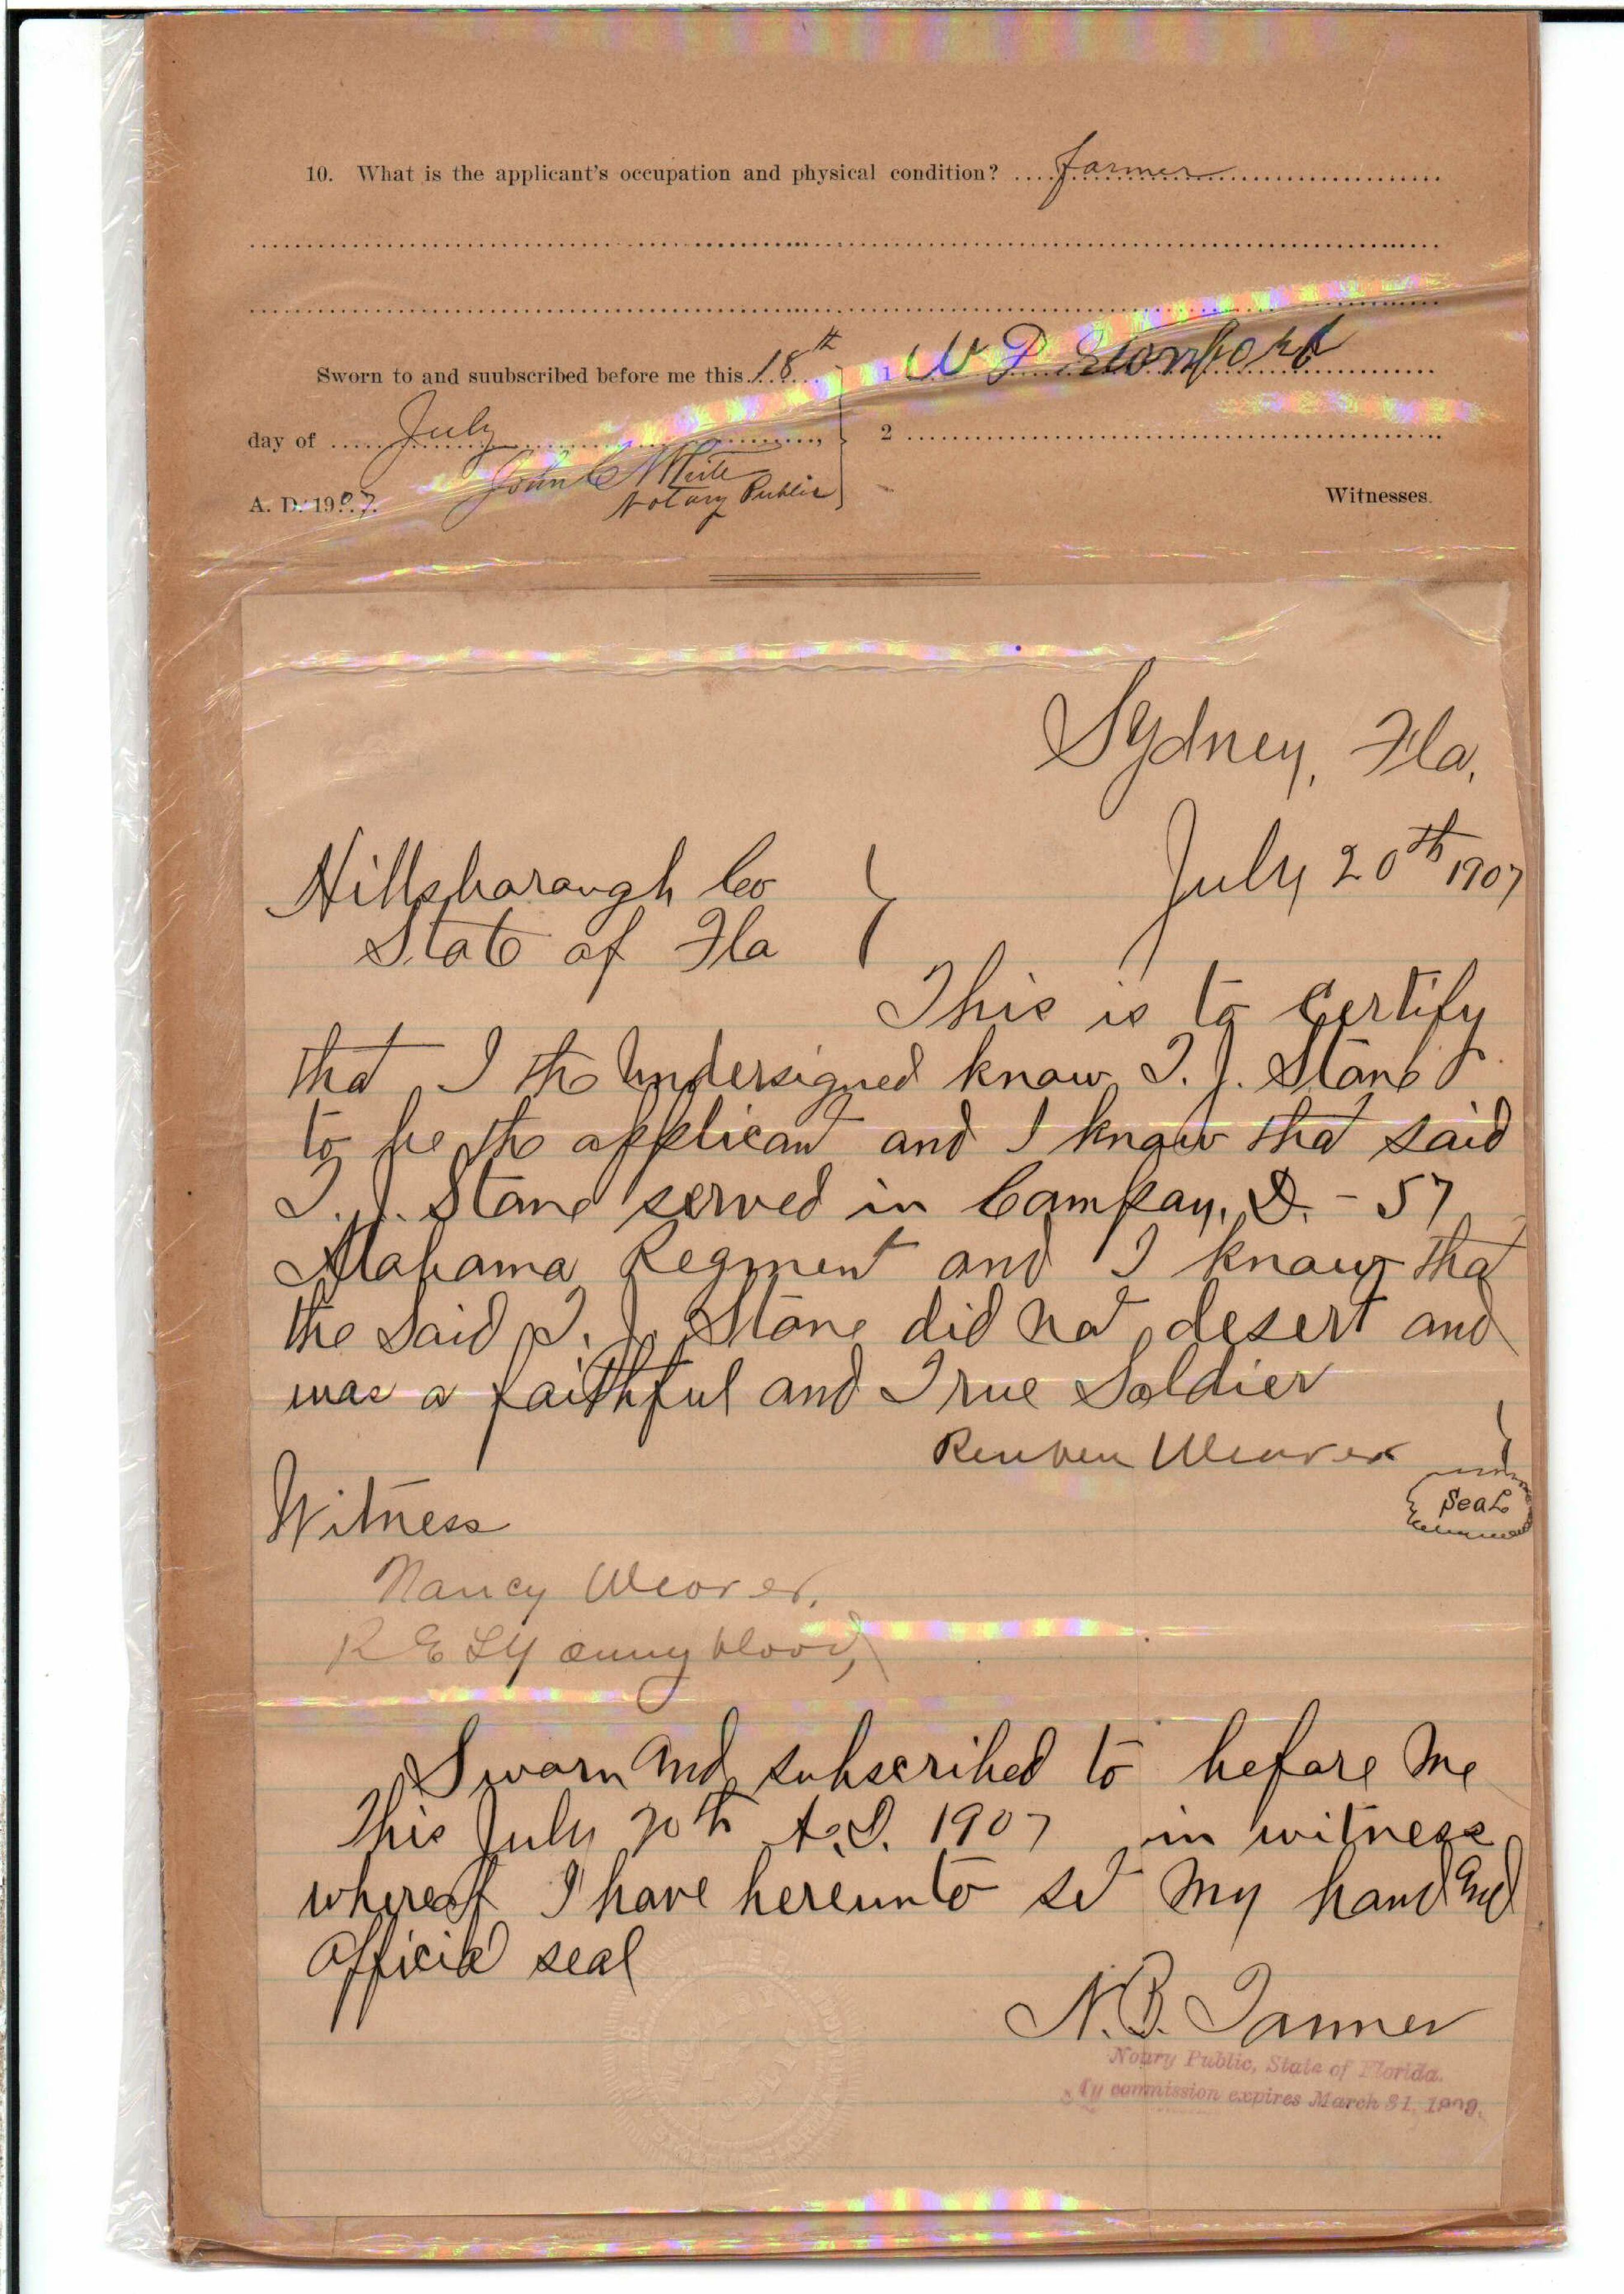 10. What is the applicant's occupation and physical condition? farmer
Sworn to and suubscribed before me this 18th
1 W P
day of July,
2
John C White
Notary Public
A. D. 1907.
Witnesses.
Sydney, Fla,
July 20th 1907
Hillsborough Co
State of Fla
This is to certify
that I the undersigned know T. J. Stone
to be the applicant and I know that said
T. J. Stone served in Compay, D. - 57
Alabama Regment and I know that
the said T. J. Stone did not desert and
was a faithful and True Soldier
Reuben Weaver
Seal
Witness
Nancy Weaver,
R E L Younyblood,
Sworn and subscribed to before me
This July 20th A.D. 1907 in witness
whereof I have hereunto set my hand and
official seal
N. B. Tanner
Notary Public, State of Florida.
My commission expires March 31, 1909.